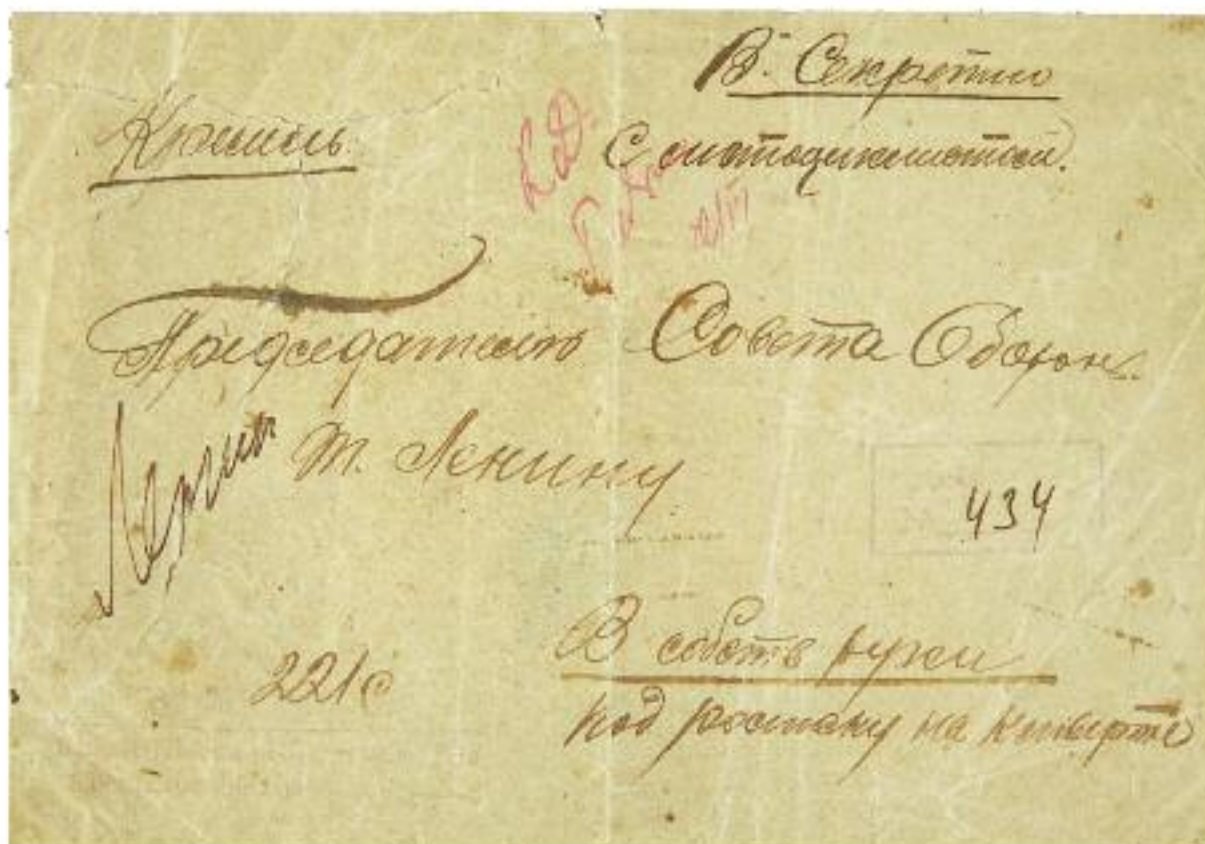 В. Секретно
Кремль.
С мотоциклистом.
Председателю Совета Обороны
т. Ленину
434
221с
В собств руки
под расписку на конверте